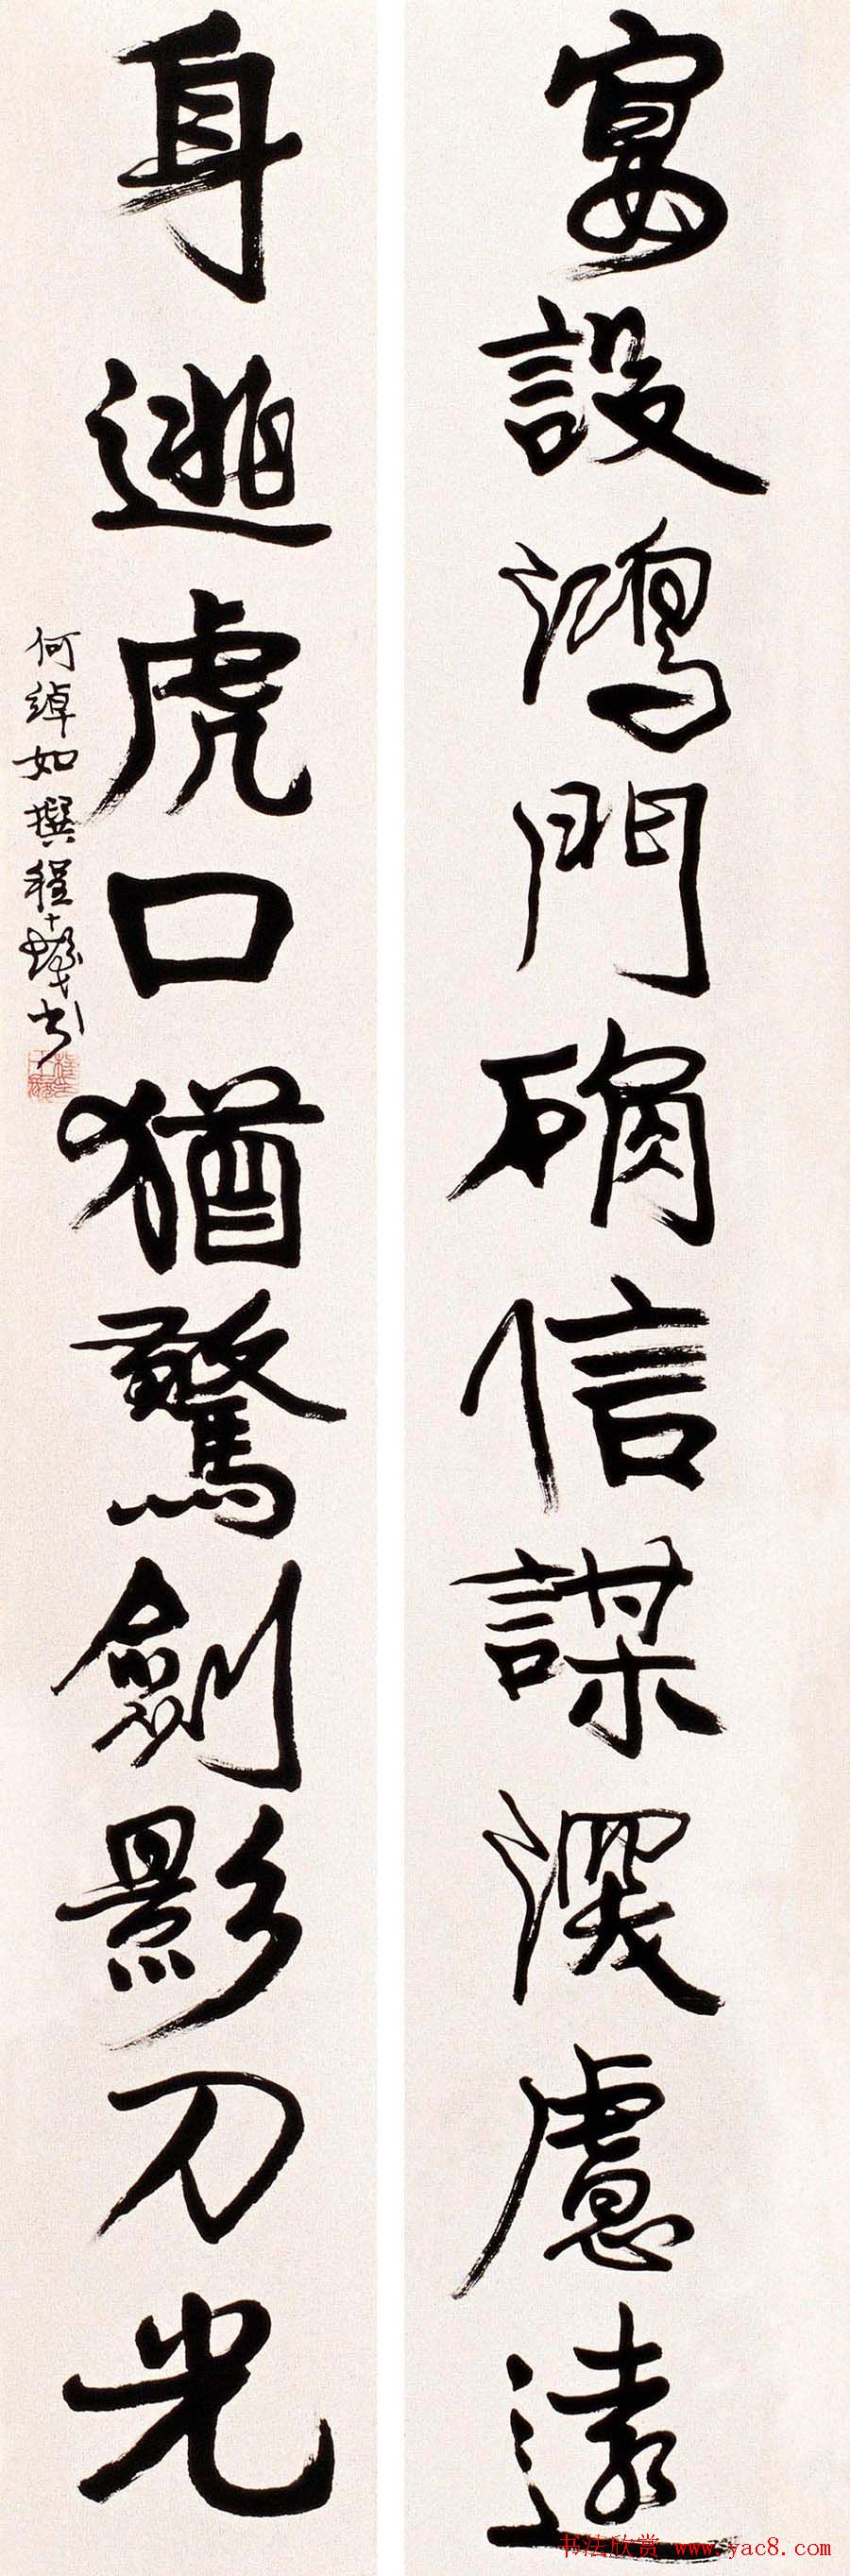 宴設鴻門确信謀深慮遠
身逃虎口猶驚劍影刀光
何綽如撰程十髮書
书法欣赏 www.yac8.com